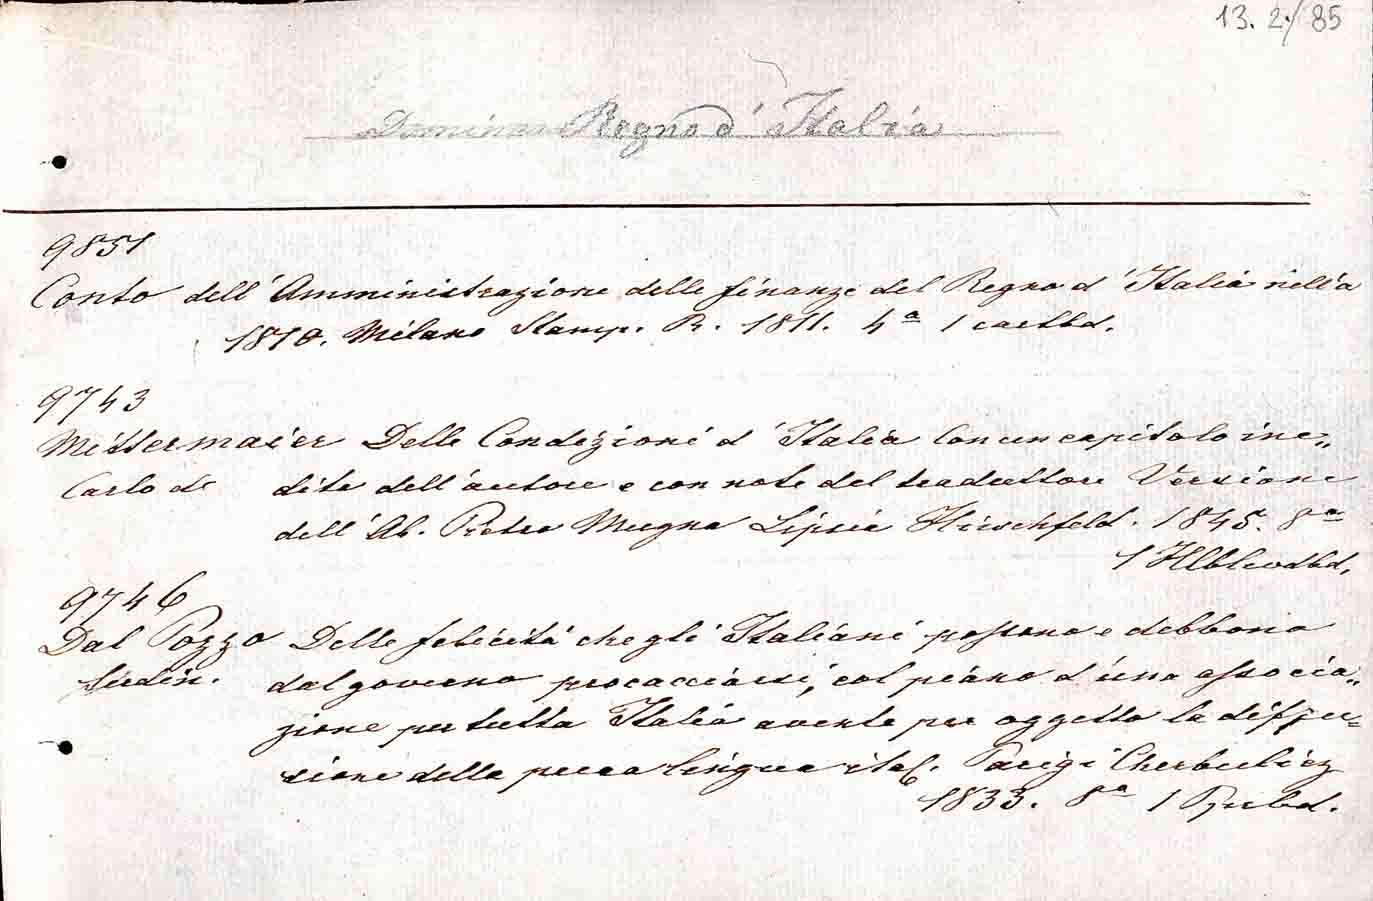 13. 2./85
Regno d'Italia
9851
Conto dell'Amministrazione delle finanze del Regno d'Italia nell'a
1810. Milano Stamp. R. 1811. 4ª 1 cartbd.
9743
Mittermaier Delle Condizioni d'Italia Con un capitolo ine„
Carlo de dito dell'autore e con note del traduttore Versione
dell'Ab. Pietro Mugna Lipsia Hirschfeld. 1845. 8ª
1 Hlblwdbd.
9746
Dal Pozzo Delle felicità che gl'Italiani possono e debbono
Ferdin. dal governo procacciarsi, col piano d'una associa„
zione per tutta Italia avente per oggetto la diffu=
sione della pura lingua ital. Parigi Cherbuliez
1833. 8ª 1 Ppbd.